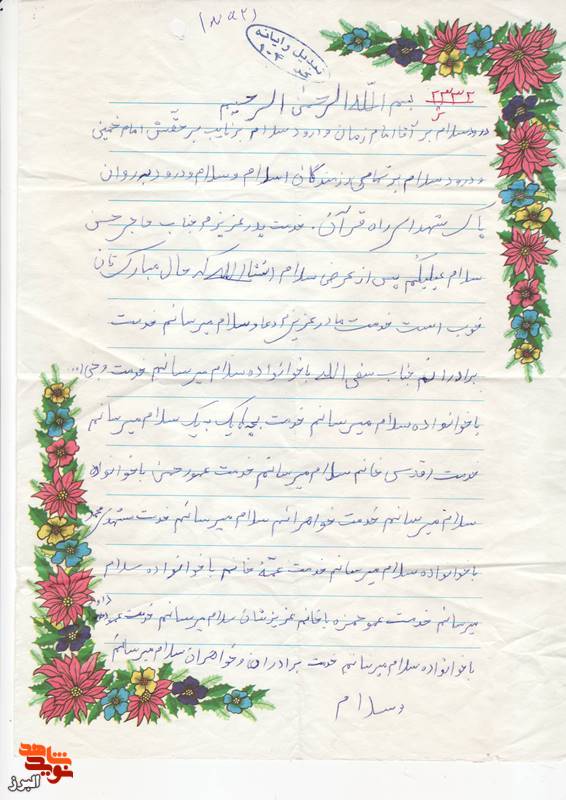 (۵۸۲)
تبدیل رایانه
۲۳۳۲
بسم الله الرحمن الرحیم
درود سلام بر آقا امام زمان و درود سلام بر نایب برحقش امام خمینی
و درود سلام بر تمامی رزمندگان اسلام و سلام و درود به روان
پاک شهدای راه قرآن. خدمت پدر عزیزم جناب حاجی حسن
سلام علیلیکم پس از عرض سلام انشاالله که حال مبارک تان
خوب است خدمت مادر عزیزم دعاوسلام میرسانم خدمت
برادرانم جناب سفی الله باخوانواده سلام میرسانم خدمت
باخوانواده سلام میرسانم خدمت بچه‌ها یک به یک سلام میرسانم
خدمت اقدسی خانم سلام میرسانم خدمت عمو حسن باخوانواده
سلام میرسانم خدمت خواهرانم سلام میرسانم خدمت مشهدی محمد
باخوانواده سلام میرسانم خدمت عمّه خانم باخوانواده سلام
میرسانم خدمت عمو حمزه باخانم عزیزشان سلام میرسانم خدمت عمو
باخوانواده سلام میرسانم خدمت برادران و خواهران سلام میرسانم
وسلام
نوید شاهد
البرز